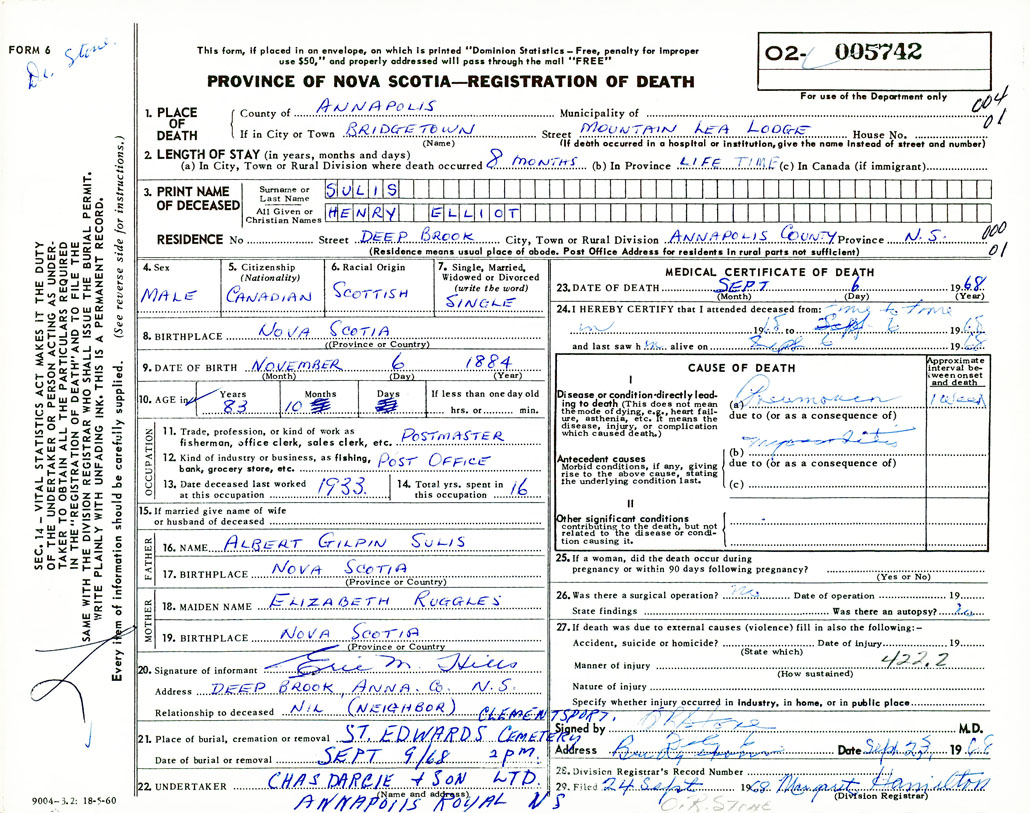 FORM 6
Dr. Stone.
This form, if placed in an envelope, on which is printed "Dominion Statistics – Free, penalty for improper
use $50," and properly addressed will pass through the mail "FREE"
PROVINCE OF NOVA SCOTIA—REGISTRATION OF DEATH
02- 005742
For use of the Department only
004
01
1. PLACE OF DEATH
County of ANNAPOLIS Municipality of
If in City or Town BRIDGETOWN Street MOUNTAIN LEA LODGE House No.
(Name) (If death occurred in a hospital or institution, give the name instead of street and number)
2. LENGTH OF STAY (in years, months and days)
(a) In City, Town or Rural Division where death occurred 8 MONTHS (b) In Province LIFE TIME (c) In Canada (if immigrant)
3. PRINT NAME OF DECEASED
Surname or Last Name SULIS
All Given or Christian Names HENRY ELLIOT
000
01
RESIDENCE No Street DEEP BROOK City, Town or Rural Division ANNAPOLIS COUNTY Province N.S.
(Residence means usual place of abode. Post Office Address for residents in rural parts not sufficient)
4. Sex
MALE
5. Citizenship (Nationality)
CANADIAN
6. Racial Origin
SCOTTISH
7. Single, Married, Widowed or Divorced (write the word)
SINGLE
8. BIRTHPLACE NOVA SCOTIA
((Province or Country)
9. DATE OF BIRTH NOVEMBER 6 1884
(Month) (Day) (Year)
10. AGE in Years Months Days If less than one day old
83 10 hrs. or min.
OCCUPATION
11. Trade, profession, or kind of work as
fisherman, office clerk, sales clerk, etc. POSTMASTER
12. Kind of industry or business, as fishing,
bank, grocery store, etc. POST OFFICE
13. Date deceased last worked
at this occupation 1933.
14. Total yrs. spent in
this occupation 16
15. If married give name of wife
or husband of deceased
FATHER
16. NAME ALBERT GILPIN SULIS
17. BIRTHPLACE NOVA SCOTIA
(Province or Country)
MOTHER
18. MAIDEN NAME ELIZABETH RUGGLES
19. BIRTHPLACE NOVA SCOTIA
(Province or Country
20. Signature of informant Eric M. Hills
Address DEEP BROOK, ANNA. Co. N.S.
Relationship to deceased NIL (NEIGHBOR)
CLEMENTSPORT.
21. Place of burial, cremation or removal ST. EDWARDS CEMETERY
Date of burial or removal SEPT 9/68 2 PM.
22. UNDERTAKER CHAS DARGIE + SON LTD.
(Name and address)
ANNAPOLIS ROYAL NS
MEDICAL CERTIFICATE OF DEATH
23. DATE OF DEATH SEPT 6 1968
(Month) (Day) (Year)
24. I HEREBY CERTIFY that I attended deceased from: time to time
in 1968 to Sept 6 1968
and last saw h im alive on Sept 6 1968
CAUSE OF DEATH
Approximate interval between onset and death
I
Disease or condition directly leading to death (This does not mean the mode of dying, e.g., heart failure, asthenia, etc. It means the disease, injury, or complication which caused death.)
(a) Pneumonia 1 week
due to (or as a consequence of)
Antecedent causes
Morbid conditions, if any, giving rise to the above cause, stating the underlying condition last.
(b) Myocarditis
due to (or as a consequence of)
(c)
II
Other significant conditions
contributing to the death, but not related to the disease or condition causing it.
25. If a woman, did the death occur during
pregnancy or within 90 days following pregnancy?
(Yes or No)
26. Was there a surgical operation? no Date of operation 19
State findings Was there an autopsy? no
27. If death was due to external causes (violence) fill in also the following:-
Accident, suicide or homicide? Date of injury 19
(State which)
Manner of injury 422.2
(How sustained)
Nature of injury
Specify whether injury occurred in industry, in home, or in public place
Signed by M.D.
Address Bridgetown Date Sept 23, 1968
28. Division Registrar's Record Number
29. Filed 24 Sept 1968 Margaret Hamilton
(Division Registrar)
O.K. STONE
SEC. 14 – VITAL STATISTICS ACT MAKES IT THE DUTY
OF THE UNDERTAKER OR PERSON ACTING AS UNDER-
TAKER TO OBTAIN ALL THE PARTICULARS REQUIRED
IN THE "REGISTRATION OF DEATH" AND TO FILE THE
SAME WITH THE DIVISION REGISTRAR WHO SHALL ISSUE THE BURIAL PERMIT.
WRITE PLAINLY WITH UNFADING INK. THIS IS A PERMANENT RECORD.
Every item of information should be carefully supplied. (See reverse side for instructions.)
9004–3.2: 18-5-60